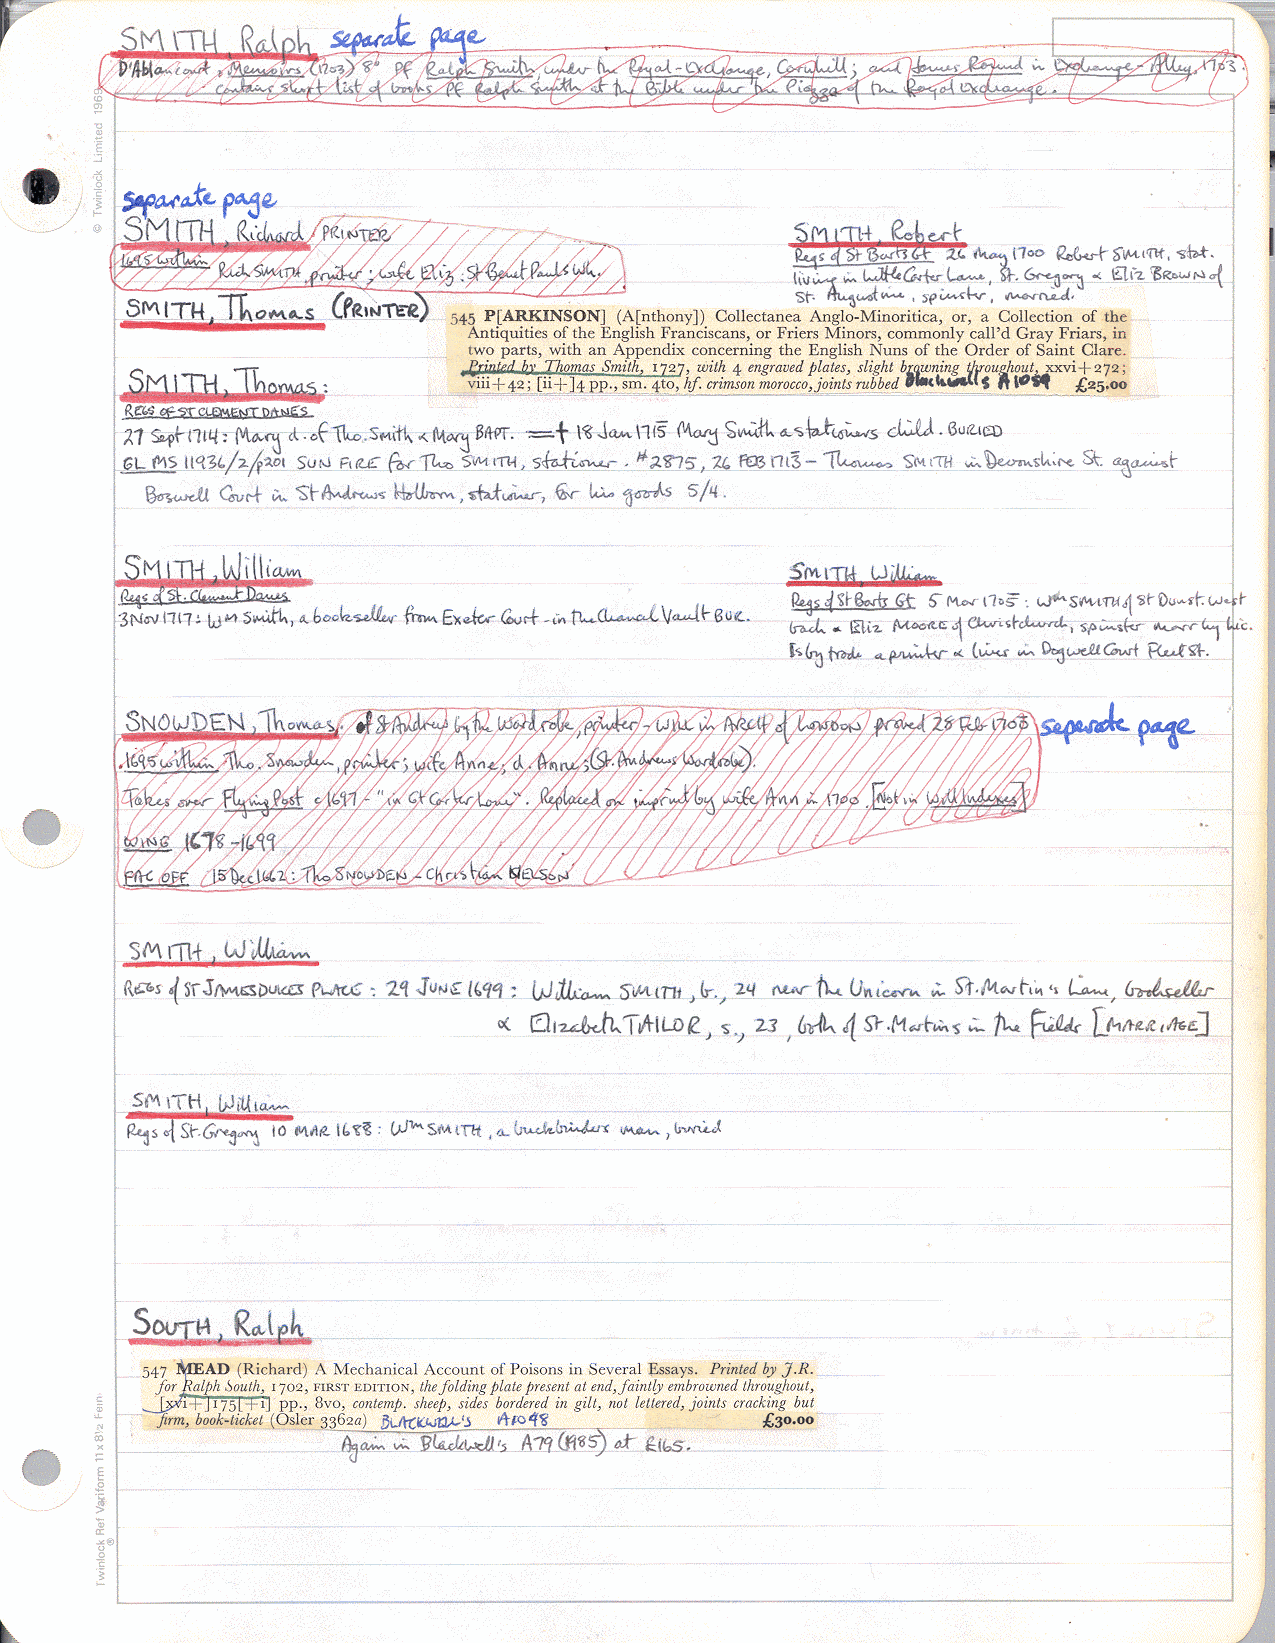 SMITH, Ralph separate page
D'Ablancourt, Memoirs (1703) 8° Pf Ralph Smith under the Royal-Exchange, Cornhill; and James Round in Exchange-Alley, 1703.
contains short list of books Pf Ralph Smith at the Bible under the Piazza of the Royal Exchange.
© Twinlock Limited 1969
separate page
SMITH, Richard PRINTER
1695 within Rich SMITH, printer; wife Eliz: St Benet Pauls Wh.
SMITH, Robert
Regs of St Barts Gt 26 May 1700 Robert SMITH, stat.
living in Little Carter Lane, St. Gregory & Eliz BROWN of
St. Augustine, spinster, married.
SMITH, Thomas (PRINTER)
545 P[ARKINSON] (A[nthony]) Collectanea Anglo-Minoritica, or, a Collection of the
Antiquities of the English Franciscans, or Friers Minors, commonly call'd Gray Friars, in
two parts, with an Appendix concerning the English Nuns of the Order of Saint Clare.
Printed by Thomas Smith, 1727, with 4 engraved plates, slight browning throughout, xxvi+272;
viii+42; [ii+]4 pp., sm. 4to, hf. crimson morocco, joints rubbed Blackwells A1059 £25.00
SMITH, Thomas:
REGS OF ST CLEMENT DANES
27 Sept 1714: Mary d. of Tho. Smith & Mary BAPT. =† 18 Jan 1715 Mary Smith a stationers child. BURIED
GL MS 11936/2/p201 SUN FIRE for Tho SMITH, stationer. #2875, 26 FEB 1713 - Thomas SMITH in Devonshire St. against
Boswell Court in St Andrews Holborn, stationer, for his goods 5/4.
SMITH, William
Regs of St. Clement Danes
3 Nov 1717: Wm Smith, a bookseller from Exeter Court - in the Chancel Vault BUR.
SMITH, William
Regs of St Barts Gt 5 Mar 1705: Wm SMITH of St Dunst. West
bach & Eliz MOORE of Christchurch, spinster marr by lic.
Is by trade a printer & lives in Dogwell Court Fleet St.
SNOWDEN, Thomas. of St Andrews by the Wardrobe, printer - WILL in ARCH of LONDON proved 28 Feb 1703 separate page
1695 within Tho. Snowden, printer; wife Anne; d. Anne; (St. Andrews Wardrobe).
Takes over Flying Post c1697 - "in Gt Carter Lane". Replaced on imprint by wife Ann in 1700. [Not in Will Indexes]
WING 1678-1699
FAC OFF 15 Dec 1662: Tho SNOWDEN - Christian NELSON
SMITH, William
REGS of ST JAMES DUKES PLACE: 29 JUNE 1699: William SMITH, b., 24 near the Unicorn in St. Martin's Lane, bookseller
& Elizabeth TAILOR, s., 23, both of St. Martins in the Fields [MARRIAGE]
SMITH, William
Regs of St. Gregory 10 MAR 1688: Wm SMITH, a buckbinders man, buried
SOUTH, Ralph
547 MEAD (Richard) A Mechanical Account of Poisons in Several Essays. Printed by J.R.
for Ralph South, 1702, FIRST EDITION, the folding plate present at end, faintly embrowned throughout,
[xvi+]175[+1] pp., 8vo, contemp. sheep, sides bordered in gilt, not lettered, joints cracking but
firm, book-ticket (Osler 3362a) BLACKWELL'S A1048 £30.00
Again in Blackwell's A79 (1985) at £165.
Twinlock Ref Variform 11 x 8½ Feint